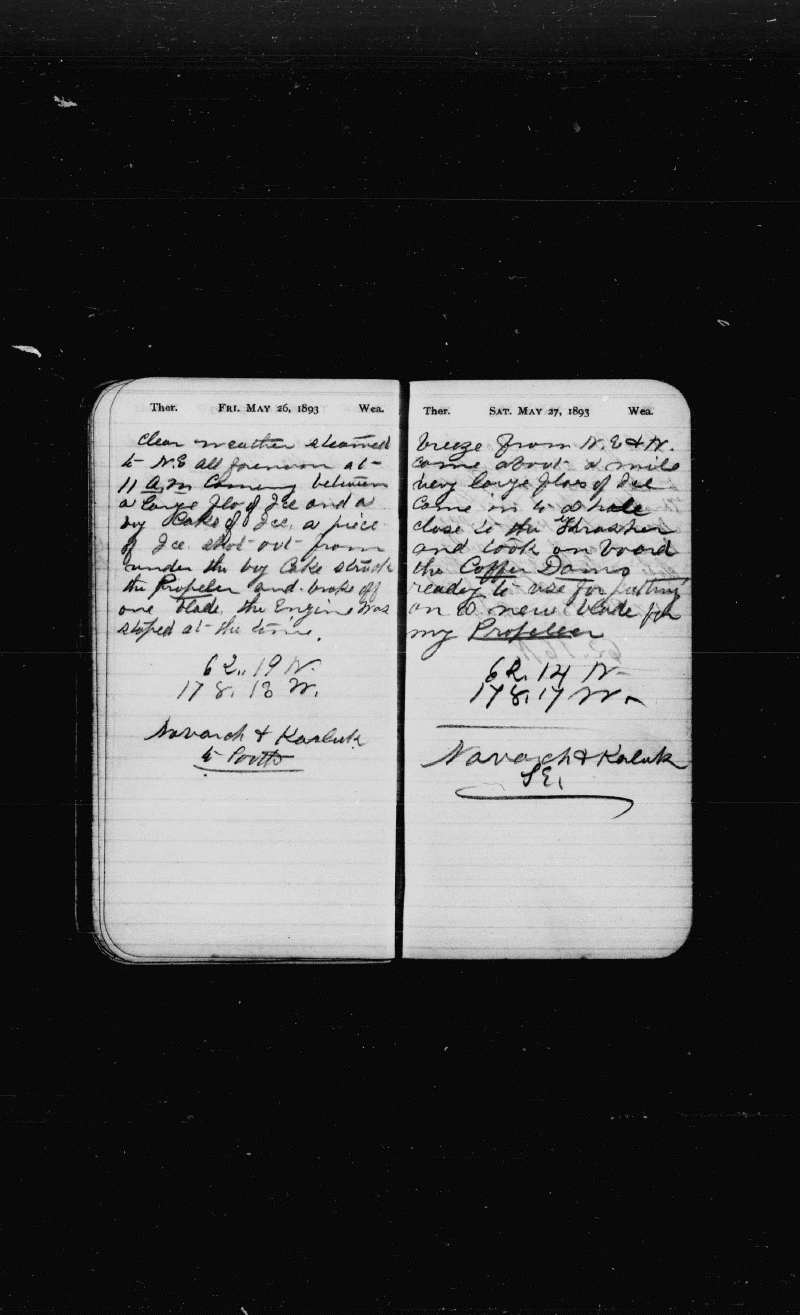 Ther. FRI. MAY 26, 1893 Wea.
Clear weather steamed
to N.E all forenoon at
11 A.M Coming between
a large flo of Ice and a
big Cake of Ice, a piece
of Ice shot out from
under the big Cake struck
the Propeler and broke off
one blade, the Engine was
stoped at the time.
62.. 19 N.
178. 18 W.
Navarch & Karluk
to South
Ther. SAT. MAY 27, 1893 Wea.
breeze from N.E & N.
come about a mile
very large flos of Ice
Come in to a hole
close to the Thrasher
and took on board
the Coffer Dams
ready to use for putting
on a new blade for
my Propeller
62. 14 N.
178. 17 W.
Navarch & Kaluk
S E.